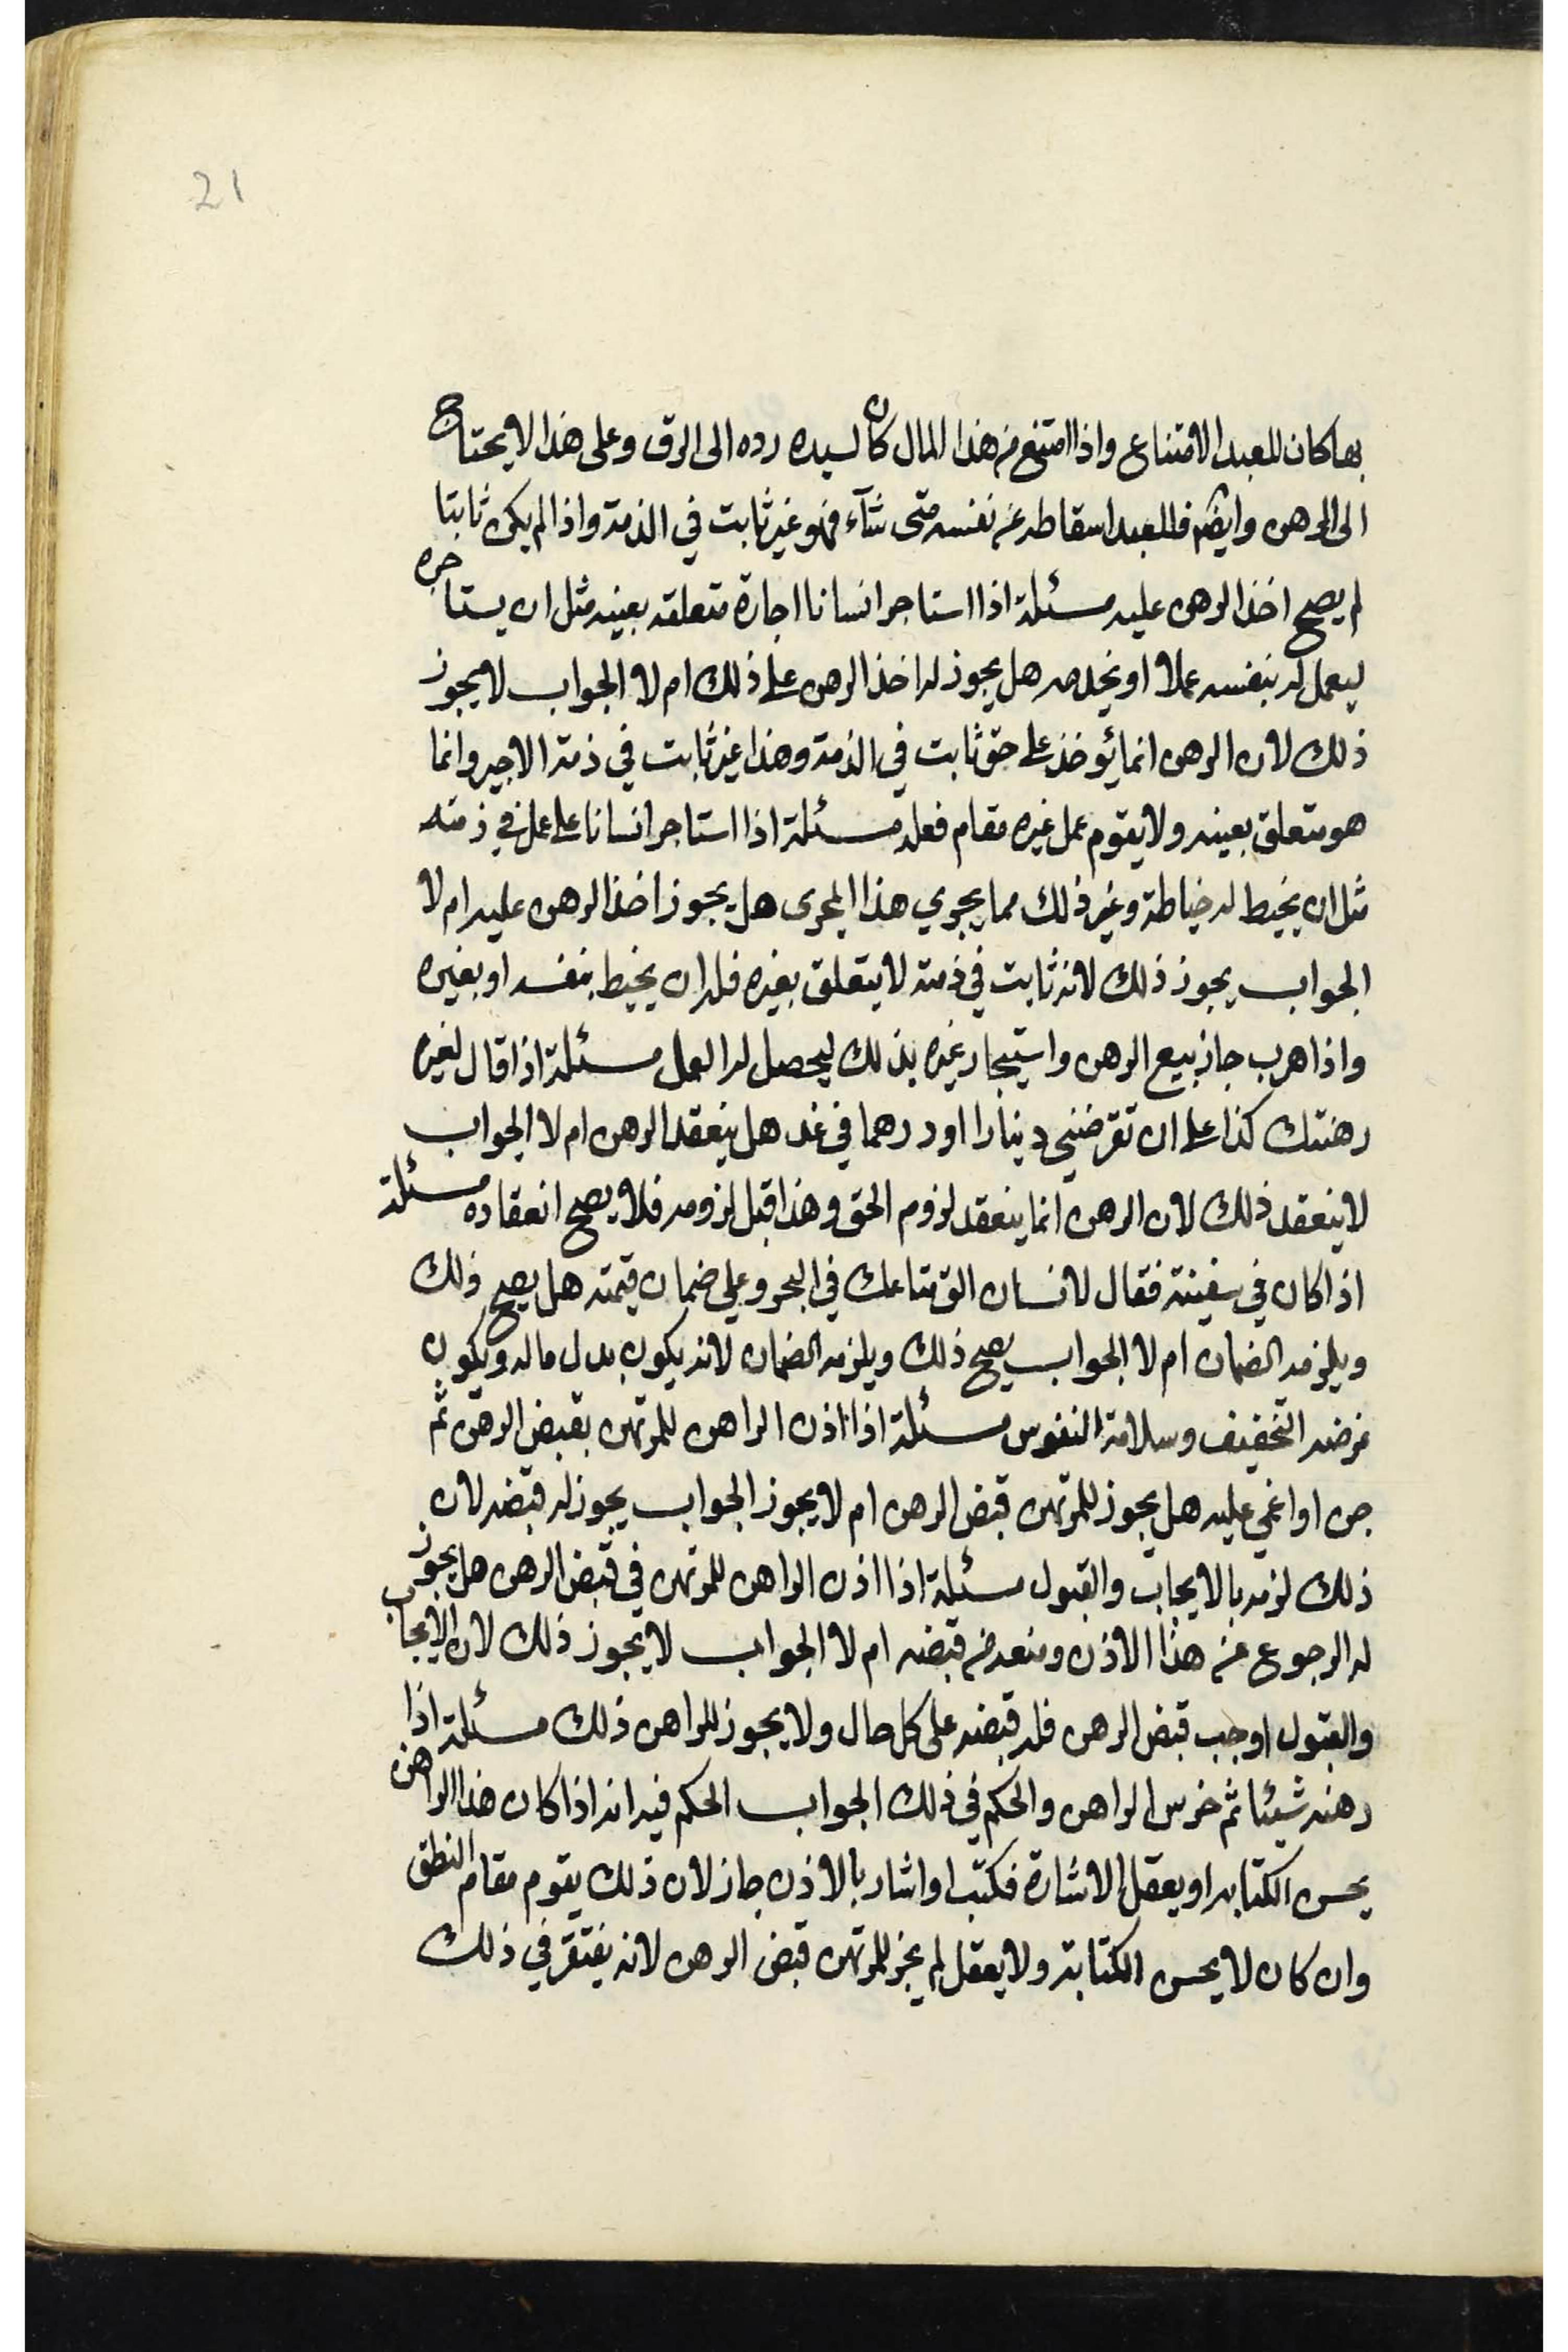 21
بها كان للعبد الامتناع واذا امتنع من هذا المال كان لسيده رده الى الرق وعلى هذا لا يحتاج
الى الرهن وايضم فللعبد اسقاطه عن نفسه متى شآء فهو غير ثابت في الذمة واذا لم يكن ثابتا
لم يصح اخذ الرهن عليه مسئلة اذا استاجر انسانا اجارة متعلقه بعينه مثل ان يستاجره
ليعمل له بنفسه عملا او يخدمه هل يجوز له اخذ الرهن على ذلك ام لا الجواب لا يجوز
ذلك لان الرهن انما يؤخذ على حق ثابت في الذمة وهذا غير ثابت في ذمة الاجير وانما
هو متعلق بعينه ولا يقوم عمل غيره مقام فعله مسئلة اذا استاجر انسانا على عمل في ذمته
مثل ان يخيط له خياطة وغير ذلك مما يجري هذا المجرى هل يجوز اخذ الرهن عليه ام لا
الجواب يجوز ذلك لانه ثابت في ذمته لا يتعلق بغيره فله ان يخيط بنفسه او بغيره
واذا هرب جاز بيع الرهن واستيجار غيره بذلك ليحصل له العمل مسئلة اذا قال لغيره
رهنتك كذا على ان تقرضني دينارا او درهما في غد هل ينعقد الرهن ام لا الجواب
لا ينعقد ذلك لان الرهن انما ينعقد لزوم الحق وهذا قبل لزومه فلا يصح انعقاده مسئلة
اذا كان في سفينة فقال لانسان الق متاعك في البحر وعلي ضمان قيمته هل يصح ذلك
ويلزمه الضمان ام لا الجواب يصح ذلك ويلزمه الضمان لانه يكون بدل ماله ويكون
غرضه التخفيف وسلامة النفوس مسئلة اذا اذن الراهن للمرتهن بقبض الرهن ثم
جن او اغمي عليه هل يجوز للمرتهن قبض الرهن ام لا يجوز الجواب يجوز له قبضه لان
ذلك لزمه بالايجاب والقبول مسئلة اذا اذن الراهن للمرتهن في قبض الرهن هل يجوز
له الرجوع عن هذا الاذن ومنعه من قبضه ام لا الجواب لا يجوز ذلك لان الايجاب
والقبول اوجب قبض الرهن فله قبضه على كل حال ولا يجوز للراهن ذلك مسئلة اذا
رهنه شيئا ثم خرس الراهن والحكم في ذلك الجواب الحكم فيه انه اذا كان هذا الراهن
يحسن الكتابه او يعقل الاشارة فكتب او اشار بالاذن جاز لان ذلك يقوم مقام النطق
وان كان لا يحسن الكتابة ولا يعقل لم يجز للمرتهن قبض الرهن لانه يفتقر في ذلك